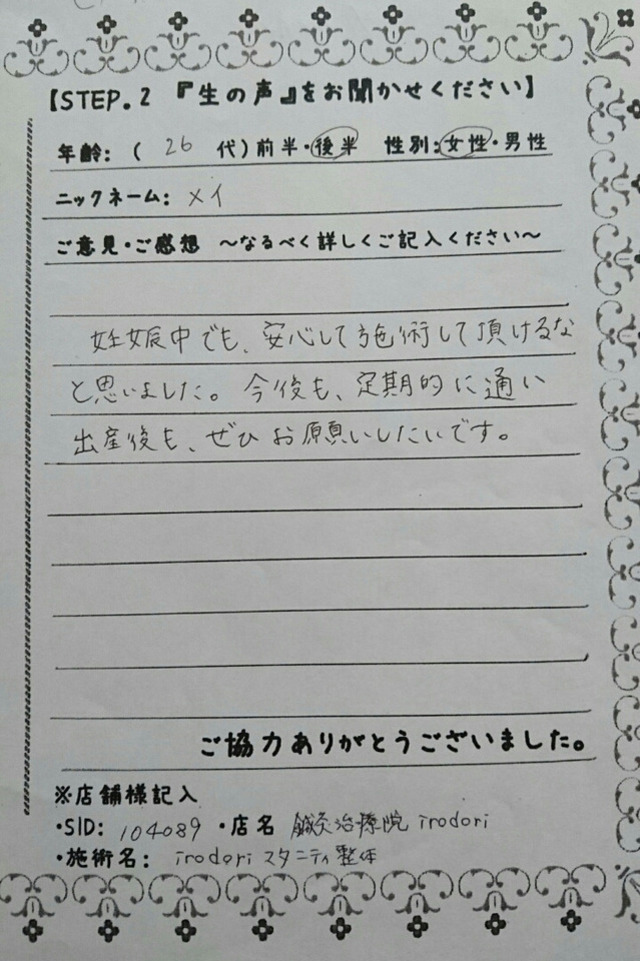 【STEP.2 『生の声』をお聞かせください】
年齢:( 26 代)前半・後半 性別:女性・男性
ニックネーム: メイ
ご意見・ご感想 ~なるべく詳しくご記入ください~
妊娠中でも、安心して施術して頂けるな
と思いました。今後も、定期的に通い
出産後も、ぜひお願いしたいです。
ご協力ありがとうございました。
※店舗様記入
・SID: 104089 ・店名 鍼灸治療院 irodori
・施術名: irodori マタニティ整体